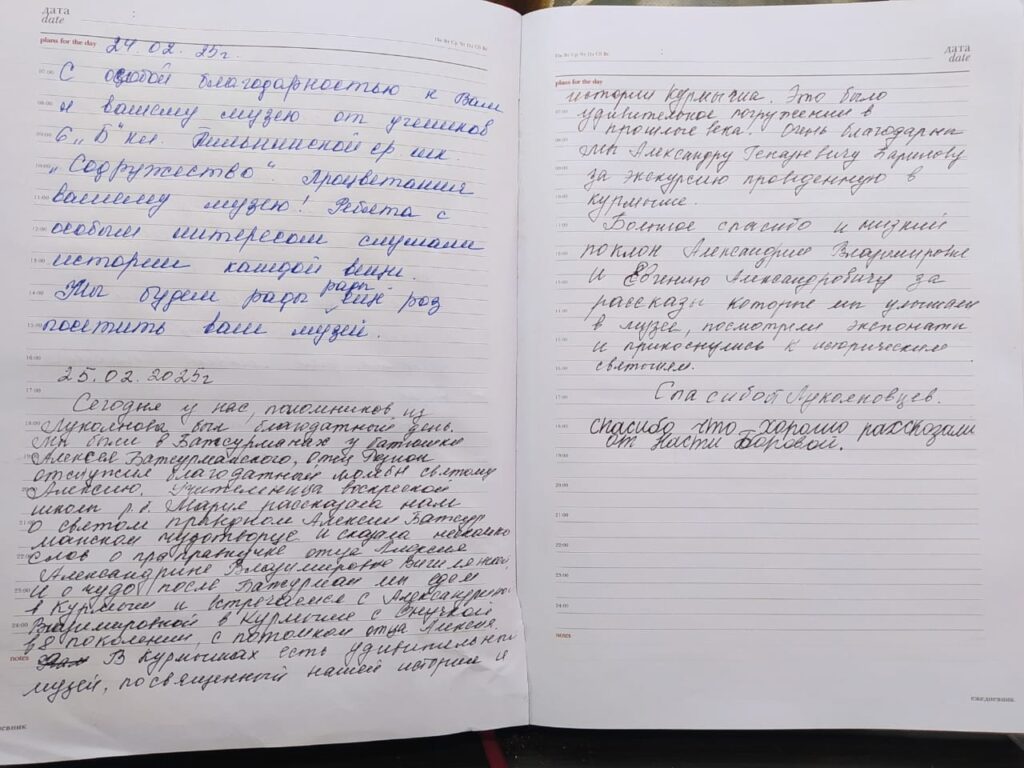 дата
date
plans for the day
24.02.25г
С особой благодарностью к Вам
и вашему музею от учеников
6 „Б" кл. Пильнинской ср. шк.
„Содружество". Процветания
вашему музею! Ребята с
особым интересом слушали
истории каждой вещи.
Мы будем рады рады ещё раз
посетить ваш музей.
25.02.2025г
Сегодня у нас, паломников, из
Лукоянова был благодатный день.
Мы были в Батсурманах у батюшки
Алексея Батсурманского, отец
отслужил благодатный молебн святому
Алексию. Учительница воскресной
школы р.б. Мария рассказала нам
о святом праведном Алексии Батсур
манском чудотворце и сказала несколько
слов о праправнучке отца Алексея
Александрине Владимировне
И о чудо после Батсурман мы едем
в Курмыш и встречаемся с Александри-
Владимировной в Курмыше с внучкой
в 8 поколении, с потомком отца Алексея.
В Курмышах есть удивительный
музей, посвященный нашей истории и
notes
дата
date
plans for the day
истории Курмыша. Это было
удивительное погружении в
прошлые века. Очень благодарны
мы Александру Генадьевичу
за экскурсию проведенную в
Курмыше.
Большое спасибо и низкий
поклон Александрине Владимировне
и Евгению Александровичу за
рассказы которые мы услышали
в музее, посмотрели экспонаты
и прикоснулись к историческим
святыням.
Спасибо от Лукояновцев.
спасибо что хорошо рассказали
от Насти Боровой.
notes
ежедневник